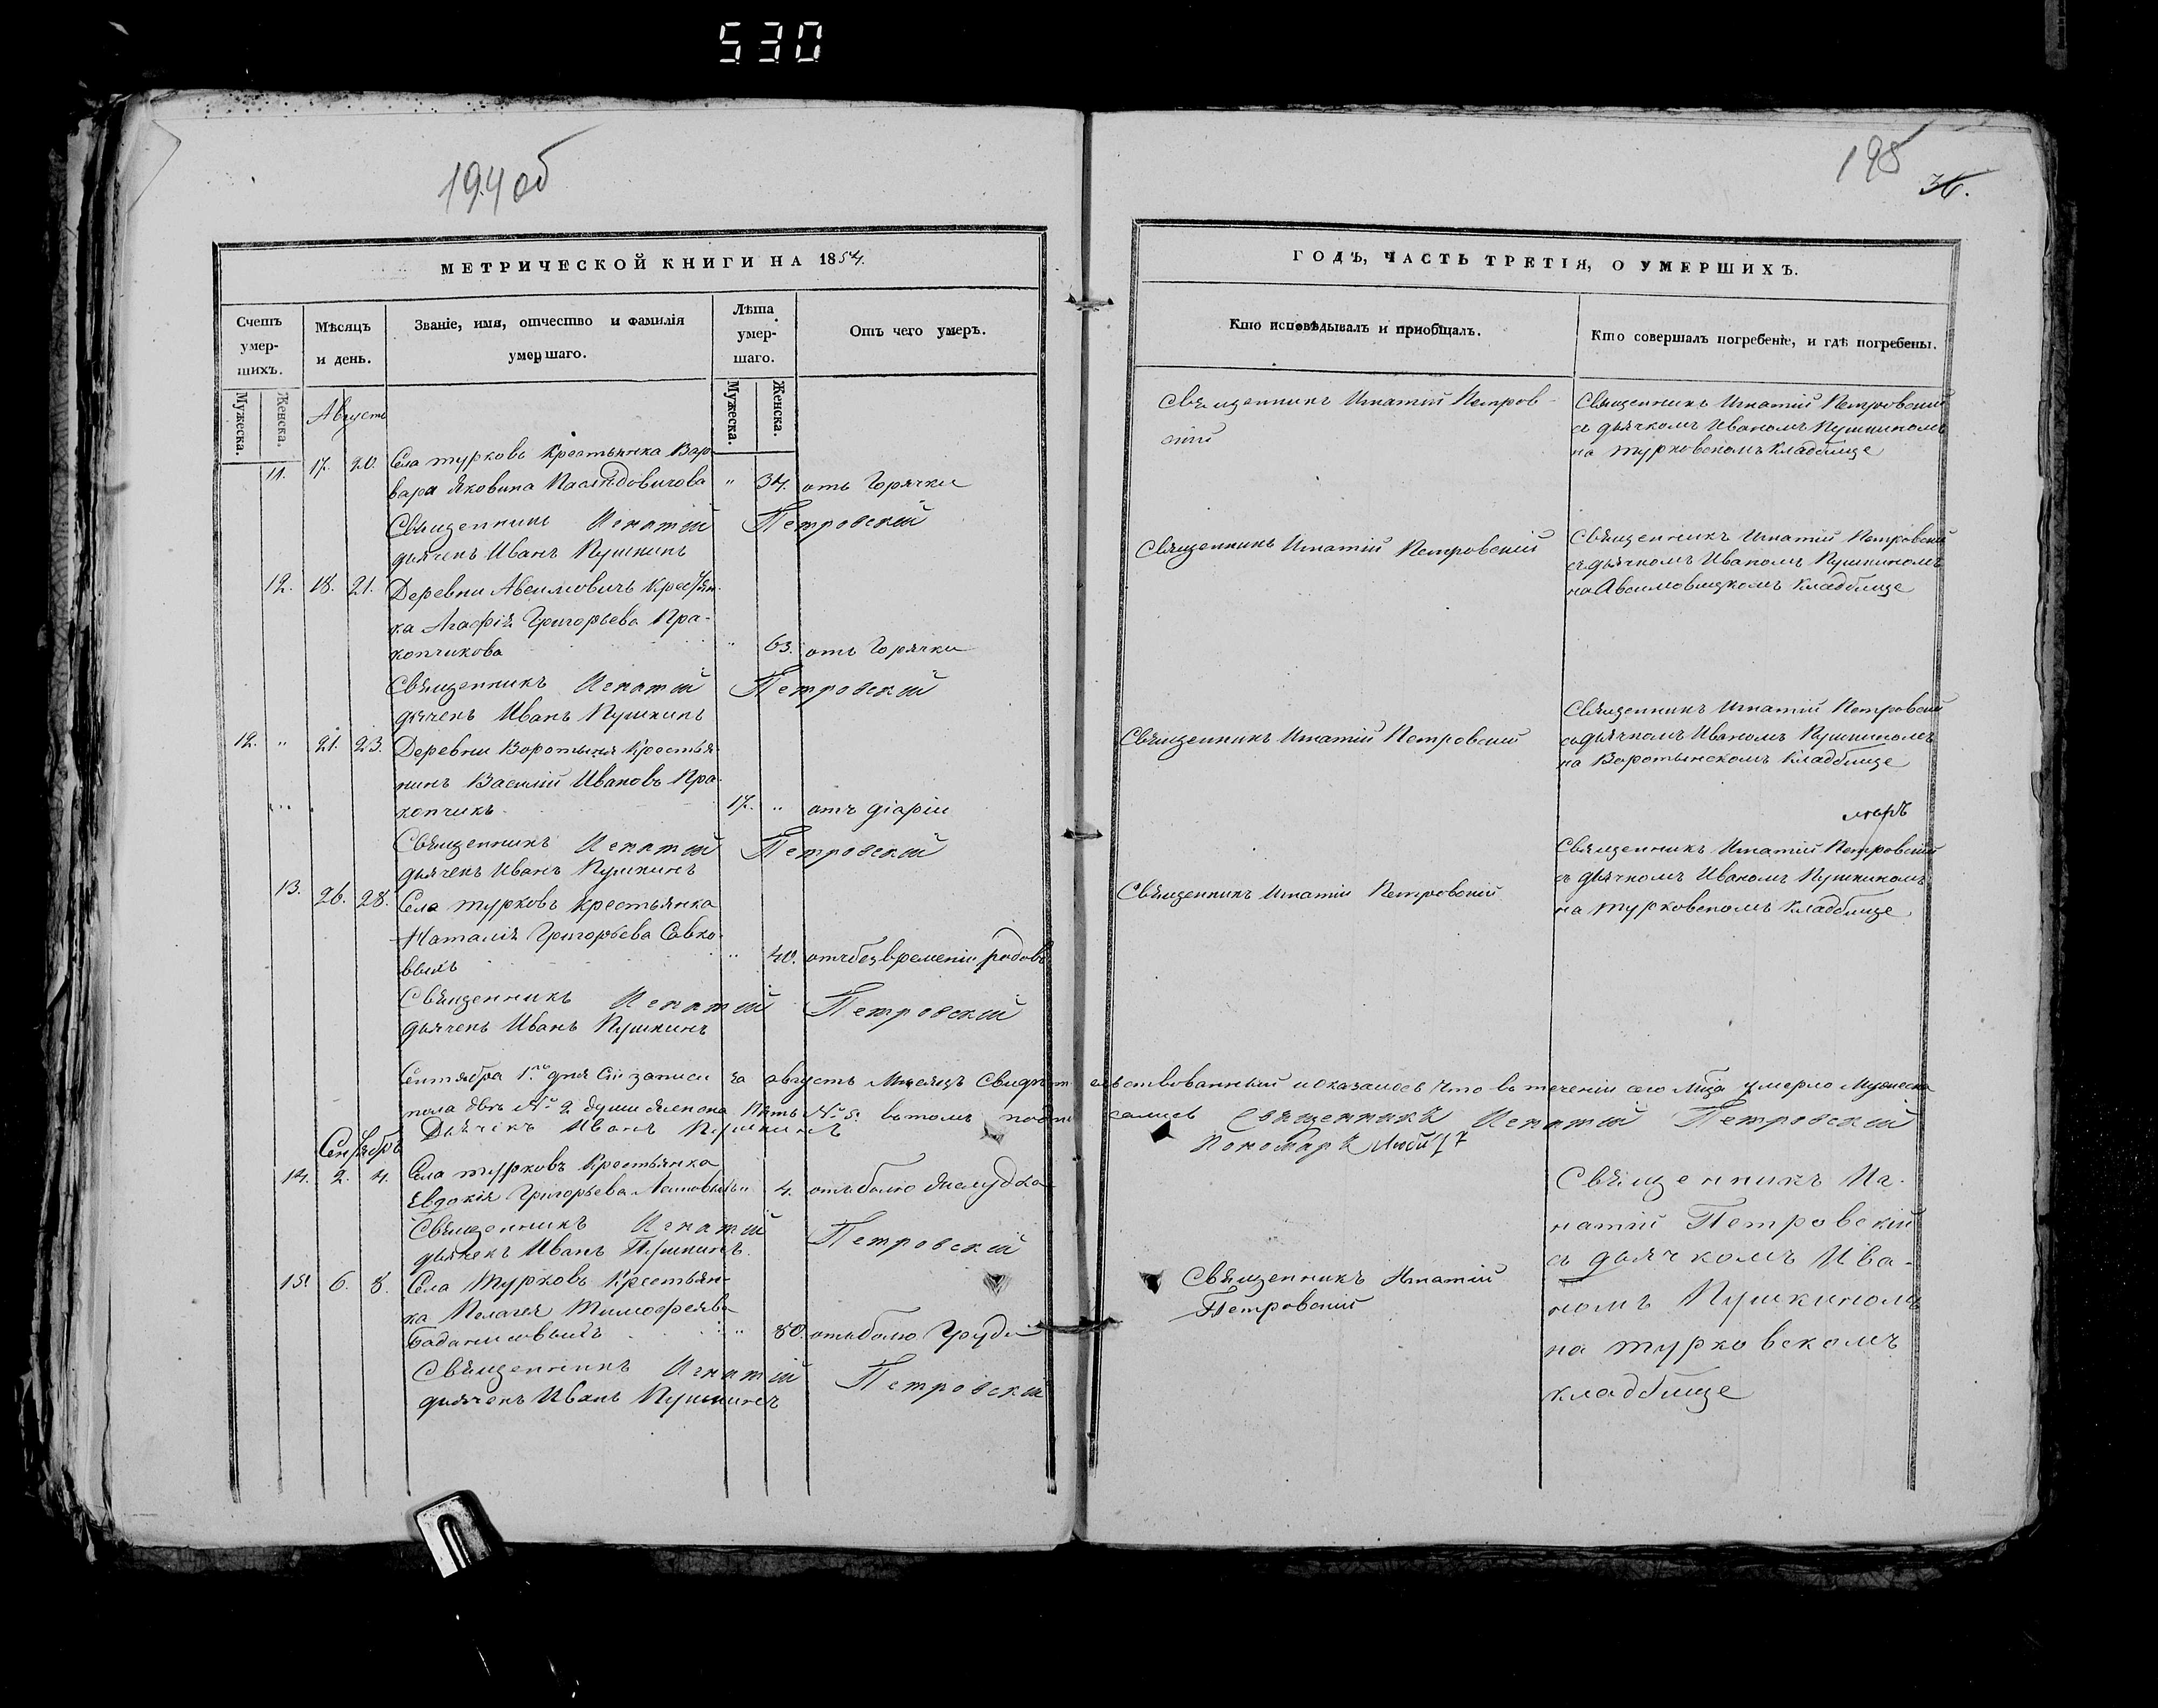 530
194об
МЕТРИЧЕСКОЙ КНИГИ НА 1854.
Счетъ умер-шихъ.
Мѣсяцъ и день.
Званіе, имя, отчество и фамилія умершаго.
Лѣта умер-шаго.
Отъ чего умеръ.
Мужеска.
Женска.
Мужеска.
Женска.
Августъ
11. 17. 20. Села Турковъ крестьянка Вар-
вара Яковина " 34. отъ Горячки
Священникъ Игнатій Петровскій
дьячекъ Иванъ Пушкинъ
12. 18. 21. Деревни Авсимовичъ крестьян-
ка Агафія Григорьева Пра-
копчикова " 63. отъ Горячки
Священникъ Игнатій Петровскій
дьячекъ Иванъ Пушкинъ
12. " 21. 23. Деревни Воротыня крестья-
нинъ Василій Ивановъ Пра-
копчикъ 17. " отъ діаріи
Священникъ Игнатій Петровскій
дьячекъ Иванъ Пушкинъ
13. 26. 28. Села Турковъ крестьянка
Наталія Григорьева Савко-
выхъ " 40. отъ безвременіи родовъ
Священникъ Игнатій Петровскій
дьячекъ Иванъ Пушкинъ
Сентября 1го дня Сіи записи за августъ Мѣсяцъ Свидѣт
пола двѣ № 2 души женска пять № 5. въ томъ подпи
Дьячекъ Иванъ Пушкинъ
Сентябрь
14. 2. 4. Села Турковъ крестьянка
Евдокія Григорьева " 4. отъ болю желудка
Священникъ Игнатій Петровскій
дьячекъ Иванъ Пушкинъ.
15. 6. 8. Села Турковъ крестьян-
ка Пелагея Тимофеява
" 80. отъ болю Груди
Священникъ Игнатій Петровскій
дьячекъ Иванъ Пушкинъ
195
36.
ГОДЪ, ЧАСТЬ ТРЕТІЯ, О УМЕРШИХЪ.
Кто исповѣдывалъ и пріобщалъ.
Кто совершалъ погребеніе, и гдѣ погребены.
Священникъ Игнатій Петров-
скій
Священникъ Игнатій Петровскій
съ дьячкомъ Иваномъ Пушкиномъ
на Турковскомъ кладбище
Священникъ Игнатій Петровскій
Священникъ Игнатій Петровскій
съ дьячкомъ Иваномъ Пушкиномъ
на Авсимовицкомъ кладбище
Священникъ Игнатій Петровскій
Священникъ Игнатій Петровскій
съ дьячкомъ Иваномъ Пушкиномъ
на Воротынскомъ кладбище
Священникъ Игнатій Петровскій
Священникъ Игнатій Петровскій
съ дьячкомъ Иваномъ Пушкиномъ
на Турковскомъ кладбище
ельствованныи и оказалось что въ теченіи сего умерло Мужеска
сались Священникъ Игнатій Петровскій
Пономарь
Священникъ Иг-
натій Петровскій
съ дьячкомъ Ива-
номъ Пушкиномъ
на Турковскомъ
кладбище
Священникъ Игнатій
Петровскій